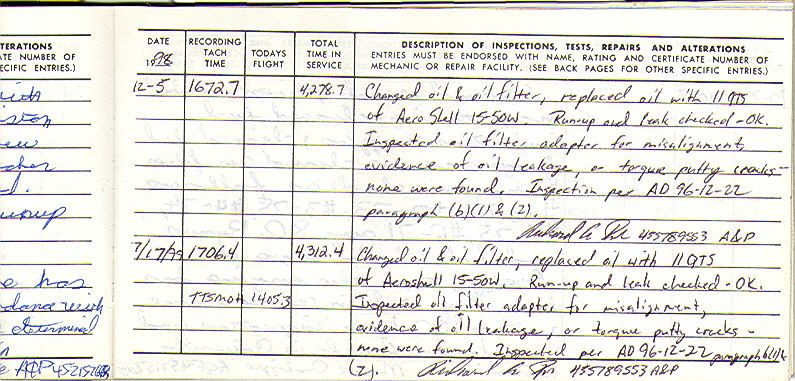 TERATIONS
TE NUMBER OF
ECIFIC ENTRIES.)
with
has
dance with
determined
A&P
DATE
1998
RECORDING
TACH
TIME
TODAYS
FLIGHT
TOTAL
TIME IN
SERVICE
DESCRIPTION OF INSPECTIONS, TESTS, REPAIRS AND ALTERATIONS
ENTRIES MUST BE ENDORSED WITH NAME, RATING AND CERTIFICATE NUMBER OF
MECHANIC OR REPAIR FACILITY. (SEE BACK PAGES FOR OTHER SPECIFIC ENTRIES.)
12-5 1672.7 4,278.7 Changed oil & oil filter, replaced oil with 11 QTS
of Aero Shell 15-50W. Runup and leak checked - OK.
Inspected oil filter adapter for misalignment,
evidence of oil leakage, or torque putty cracks -
none were found. Inspection per AD 96-12-22
paragraph (b)(1) & (2).
455789553 A&P
7/17/99 1706.4 4,312.4 Changed oil & oil filter, replaced oil with 11 QTS
of Aeroshell 15-50W. Run-up and leak checked - OK.
TTSMOH 1405.3 Inspected oil filter adapter for misalignment,
evidence of oil leakage, or torque putty cracks -
none were found. Inspected per AD 96-12-22 paragraph
(2). 455789553 A&P